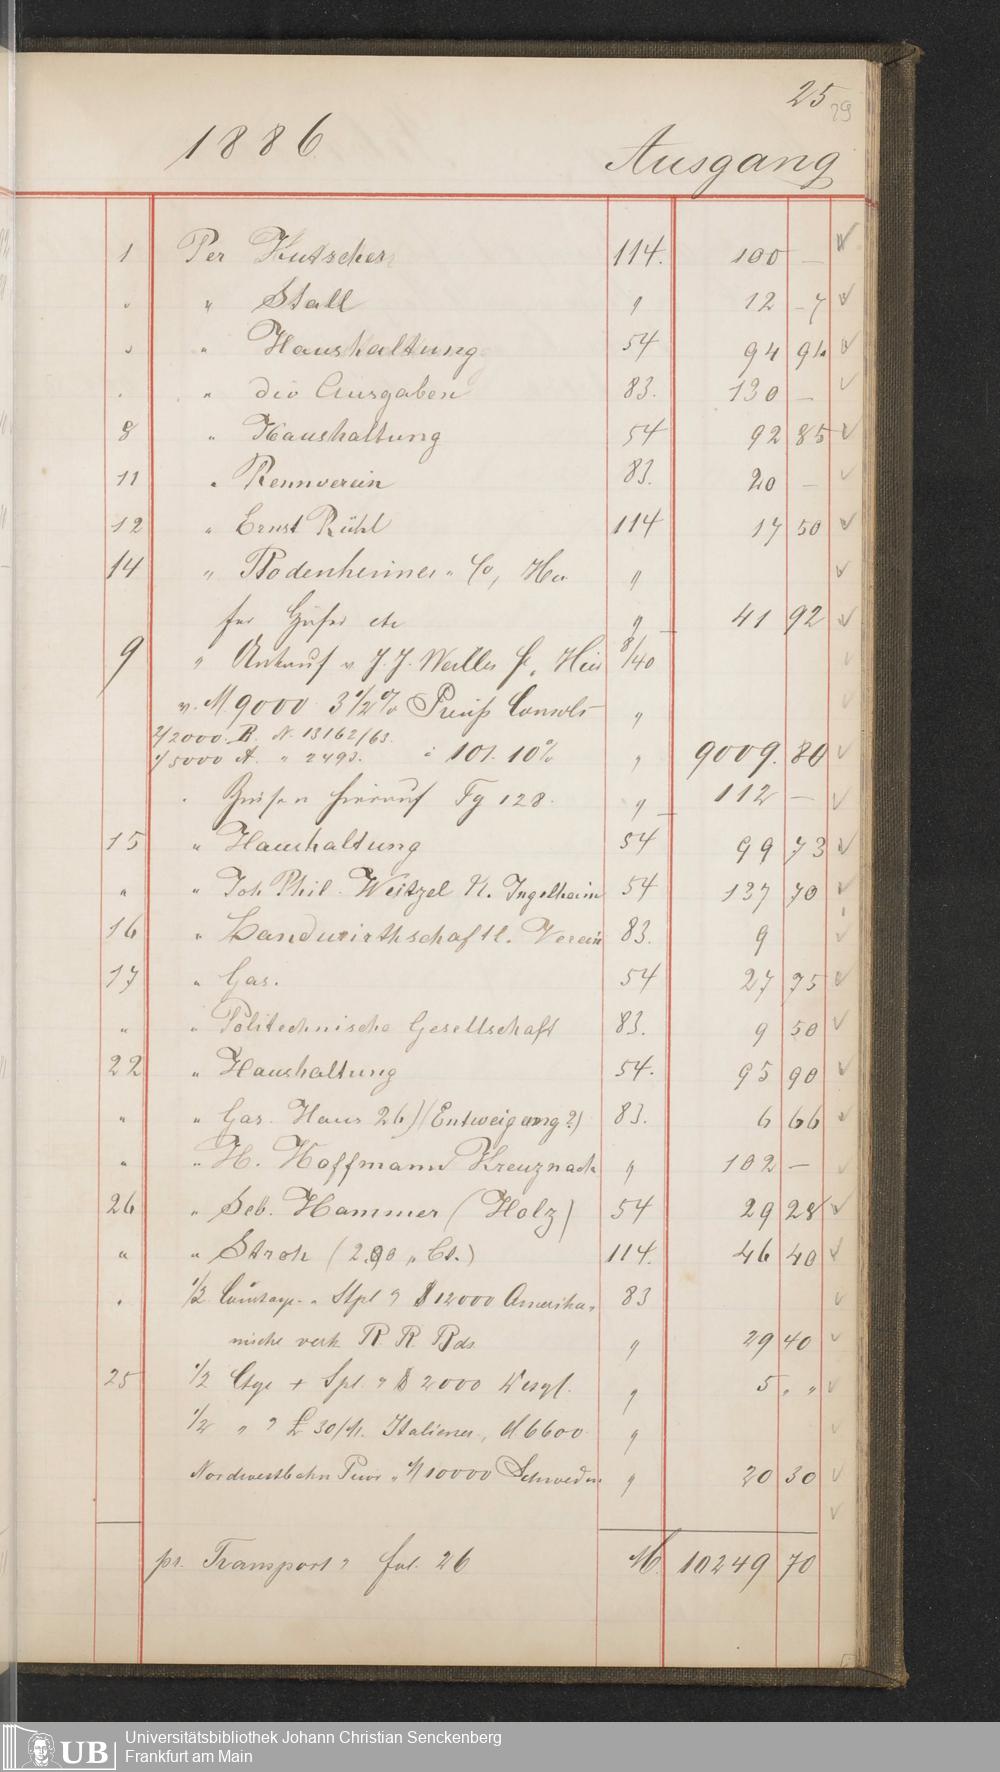 25 29
1886 Ausgang
1 Per Kutscher 114. 100 —
" " Stall " 12 - 7
" " Haushaltung 54 94 94
" " div Ausgaben 83. 130 —
8 " Haushaltung 54 92 85
11 " Rennverein 83. 20 —
12 " Ernst Rühl 114 17 50
14 " Bodenheimer & Co, "
für "  41 92
9 " Ankauf v. J. J. Weiller 8/40
v. M. 9000 3 1/2% Preuß Consols "
2/2000. B. N. 13162/63.
1/5000 A. " 2493. à 101. 10% " 9009. 80
" Zinsen hierauf Tg 128. " 112 —
15 " Haushaltung 54 99 73
" " Joh Phil. Weitzel N. Ingelheim 54 137 70
16 " Landwirthschaftl. Verein 83. 9
17 " Gas. 54 27 75
" " Politechnische Gesellschaft 83. 9 50
22 " Haushaltung 54. 95 90
" " Gas. Haus 26) (Entweigung?) 83. 6 66
" " H. Hoffmann Kreuznach " 102 —
26 " Seb. Hammer (Holz) 54 29 28
" " Stroh (2.90 " Ct.) 114. 46 40
" 1/2 Courtage " Stpl $ 12000 Amerika-
83
nische verk R. R. Bds. " 29 40
25 1/2 Ctge + Spl. $ 2000 " 5 " "
1/2 " £ 30/M. Italiener, M 6600 "
Nordwestbahn Prior " M 10000 Schweden " 20 30
pr. Transport fol. 26 M. 10249 70
UB Universitätsbibliothek Johann Christian Senckenberg
Frankfurt am Main